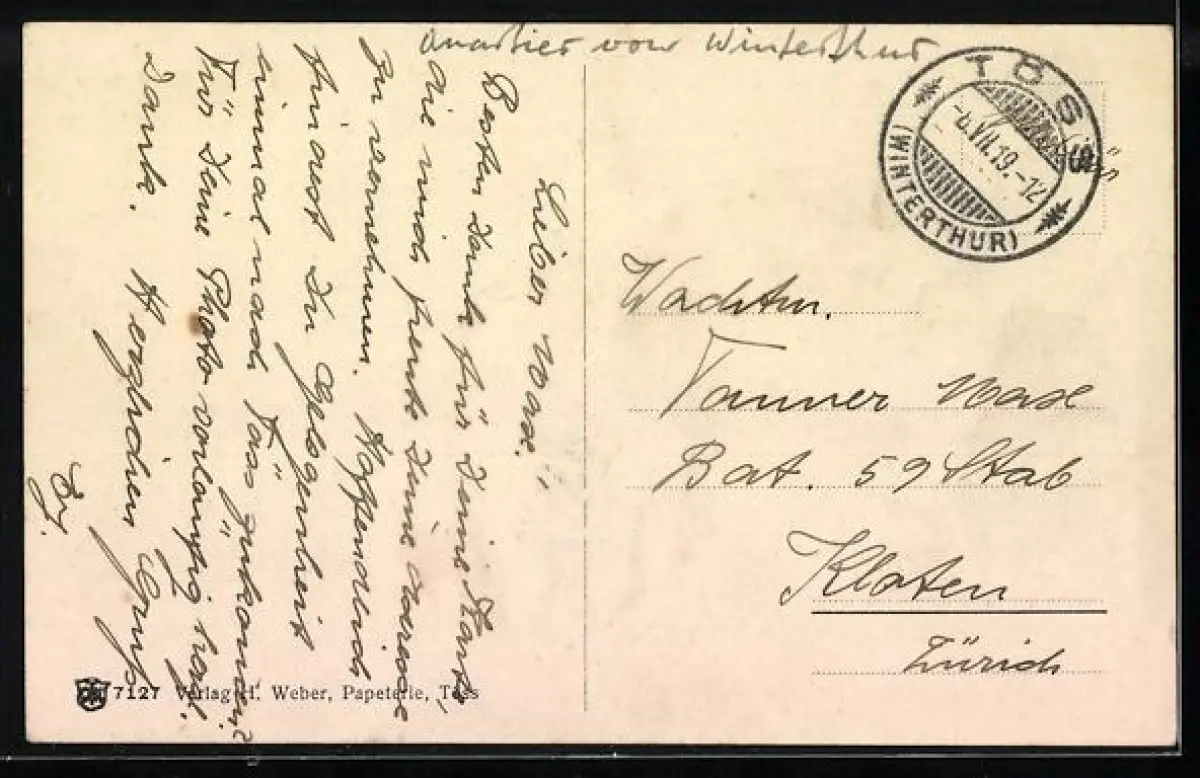 Quartier von Winterthur
TÖSS
(WINTERTHUR)
-6.VII.19.-12
Lieber Max!
Besten Dank für Deine Karte,
die mich freute Deine Adresse
zu vernehmen. Hoffendlich
findest Du Gelegenheit
einmal nach Töss zukommen?
Für Deine Photo vorläufig
Dank. Herzlichen Gruss
Wachtm.
Tanner Max
Bat. 59 Stab
Kloten
Zürich
7127 Verlag H. Weber, Papeterie, Töss